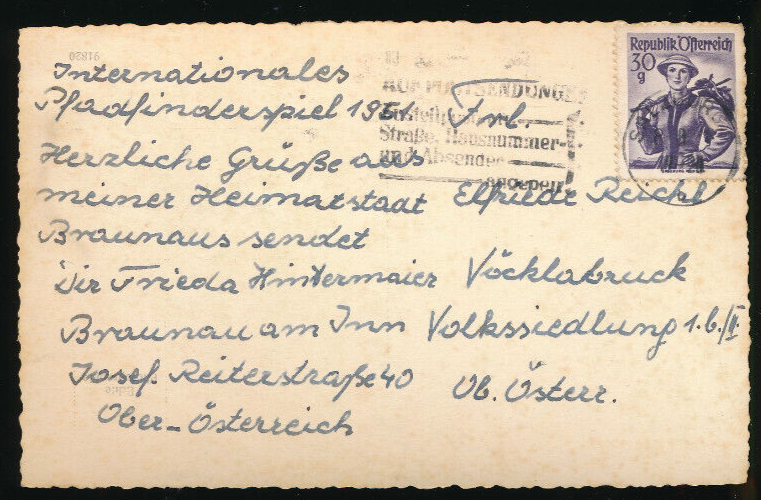 Internationales
Pfadfinderspiel 1951.
Herzliche Grüße aus
meiner Heimatstaat
Braunaus sendet
Dir Frieda Hintermaier
Braunau am Inn
Josef Reiterstraße 40
Ober-Österreich
Frl.
Elfriede Reichl
Vöcklabruck
Volkssiedlung 1.b./II.
Ob. Österr.
Republik Österreich
30
g
POSTSENDUNGEN
Straße, Hausnummer
und Absender
angeben
91820